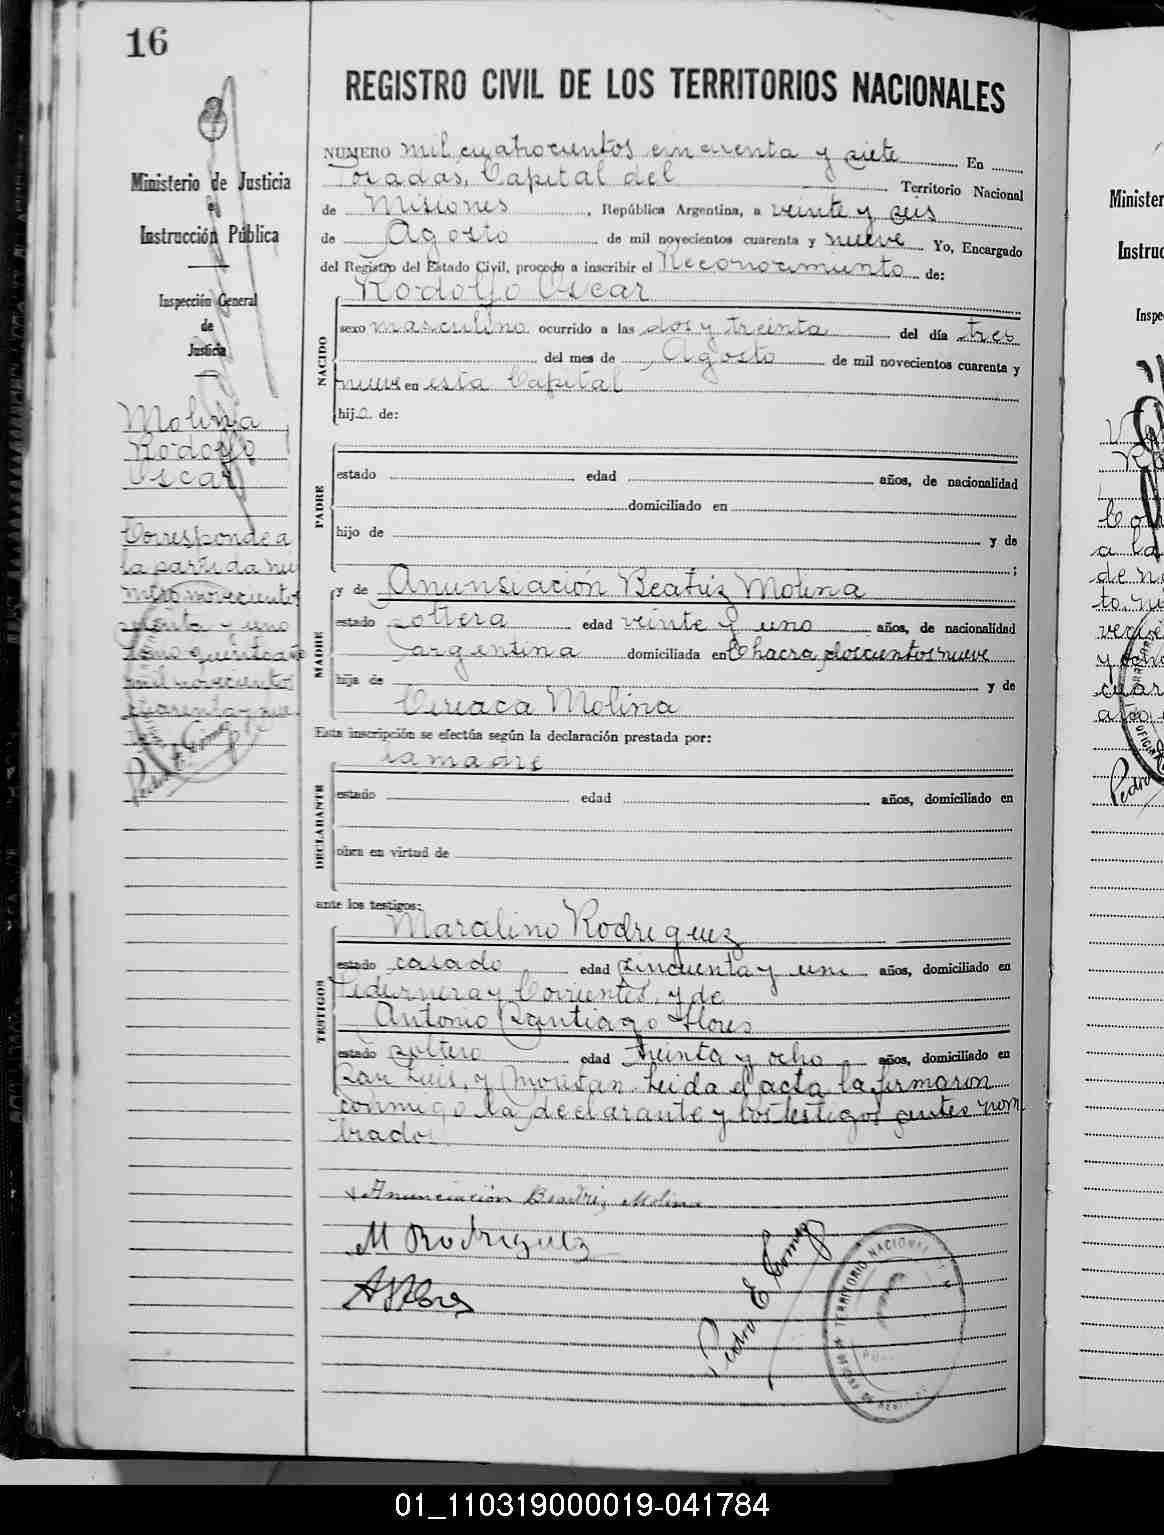 16
REGISTRO CIVIL DE LOS TERRITORIOS NACIONALES
Ministerio de Justicia
e
Instrucción Pública
Inspección General
de
Justicia
Molina
Rodolfo
Oscar
Corresponde a
la partida nu
mero novecientos
y uno
tomo
mil novecientos
cuarenta y nue
Pedro E. Gomez
NUMERO mil cuatrocientos cincuenta y siete En
Posadas, Capital del Territorio Nacional
de Misiones, República Argentina, a veinte y seis
de Agosto de mil novecientos cuarenta y nueve Yo, Encargado
del Registro del Estado Civil, procedo a inscribir el Reconocimiento de:
Rodolfo Oscar
NACIDO
sexo masculino ocurrido a las dos y treinta del día tres
del mes de Agosto de mil novecientos cuarenta y
nueve en esta Capital
hijo de:
PADRE
estado edad años, de nacionalidad
domiciliado en
hijo de y de
;
MADRE
y de Anunsiación Beatriz Molina
estado soltera edad veinte y uno años, de nacionalidad
argentina domiciliada en Chacra doscientos nueve
hija de y de
Ciriaca Molina
Esta inscripción se efectúa según la declaración prestada por:
la madre
DECLARANTE
estado edad años, domiciliado en
obra en virtud de
ante los testigos:
TESTIGOS
Marcalino Rodriguez
estado casado edad cincuenta y uno años, domiciliado en
Pedernera y Corrientes, y de
Antonio Santiago Flores
estado soltero edad treinta y ocho años, domiciliado en
San Luis, y Leida el acta la firmaron
conmigo la declarante y los testigos antes nom
brados
Anunciación Beatriz Molina
M Rodriguez
A S Flores
Pedro E Gomez
TERRITORIO NACIONAL
Ministe
Instruc
Inspe
01_110319000019-041784